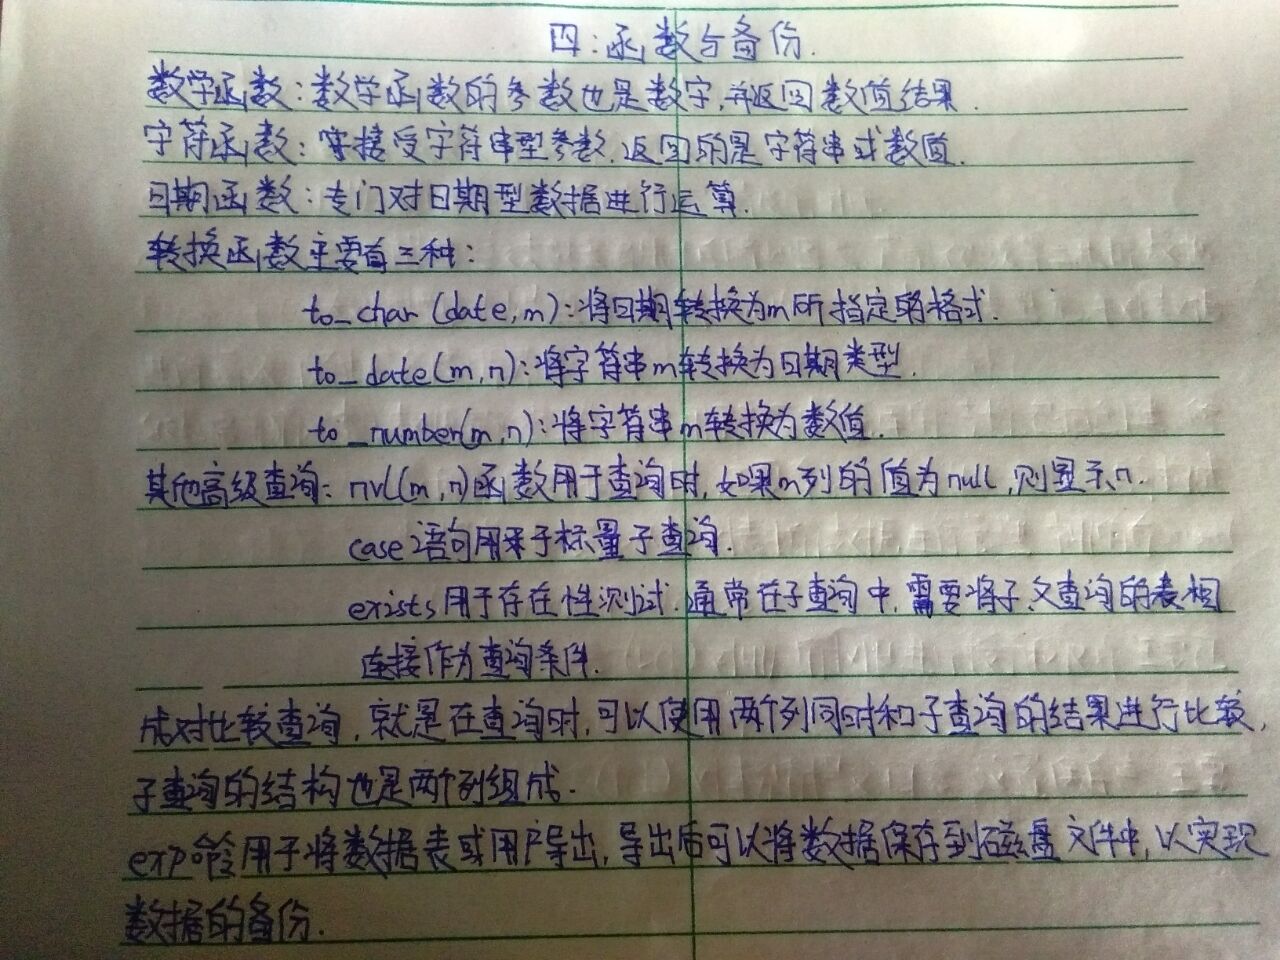 四:函数与备份.
数学函数:数学函数的参数也是数字,并返回数值结果.
字符函数:接受字符串型参数,返回的是字符串或数值.
日期函数:专门对日期型数据进行运算.
转换函数主要有三种:
to_char(date,m):将日期转换为m所指定的格式.
to_date(m,n):将字符串m转换为日期类型.
to_number(m,n):将字符串m转换为数值.
其他高级查询:nvl(m,n)函数用于查询时,如果m列的值为null,则显示n.
case语句用来于标量子查询.
exists用于存在性测试.通常在子查询中,需要将子、父查询的表相
连接作为查询条件.
成对比较查询,就是在查询时,可以使用两个列同时和子查询的结果进行比较,
子查询的结构也是两个列组成.
exp命令用于将数据表或用户导出,导出后可以将数据保存到磁盘文件中,以实现
数据的备份.